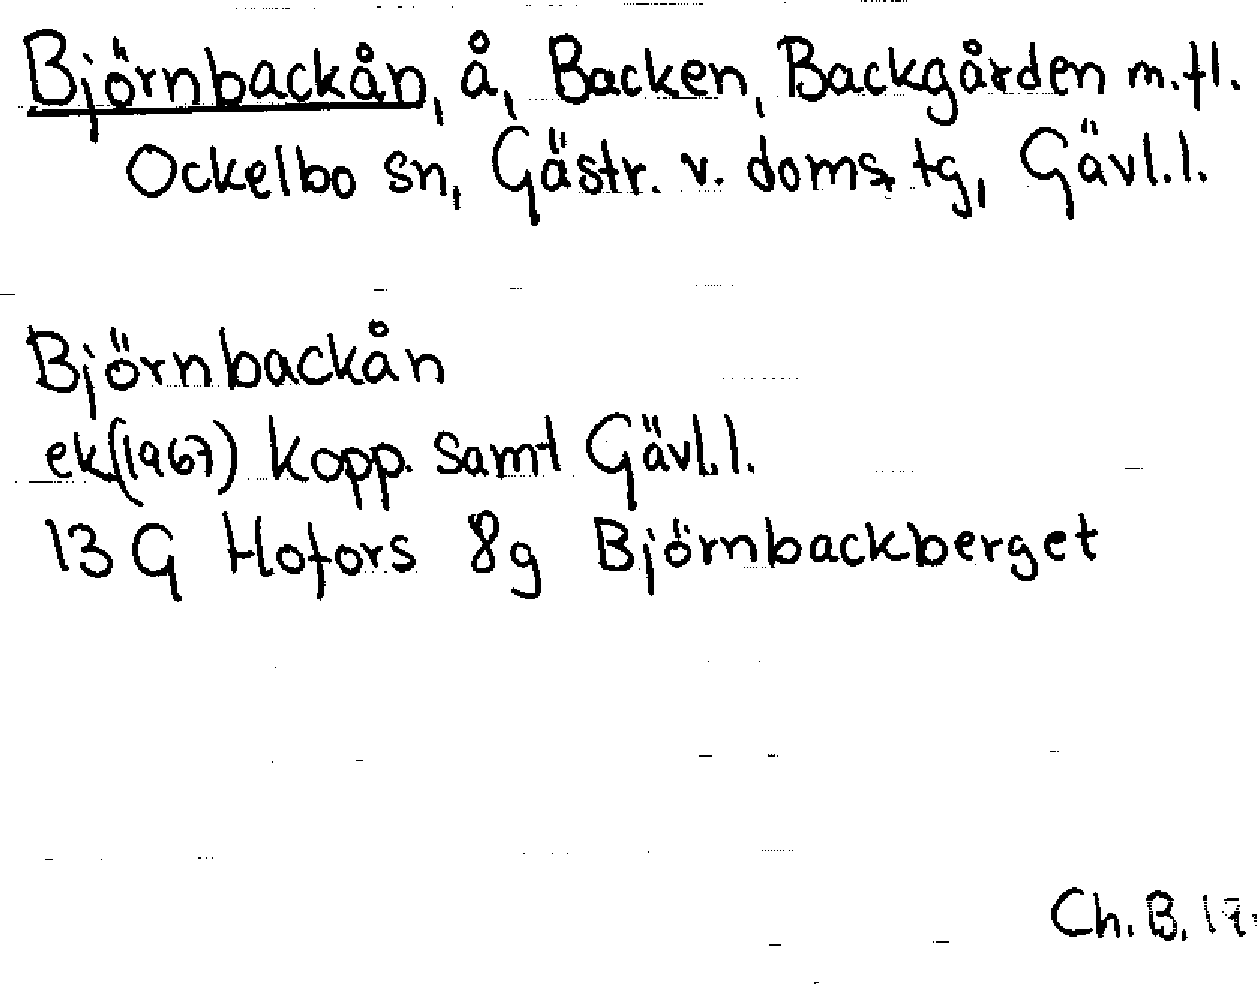 Björnbackån, å, Backen, Backgården m.fl.
Ockelbo sn, Gästr. v. doms. tg, Gävl.l.
Björnbackån
ek(1967) Kopp. samt Gävl.l.
13 G Hofors 8g Björnbackberget
Ch. B.